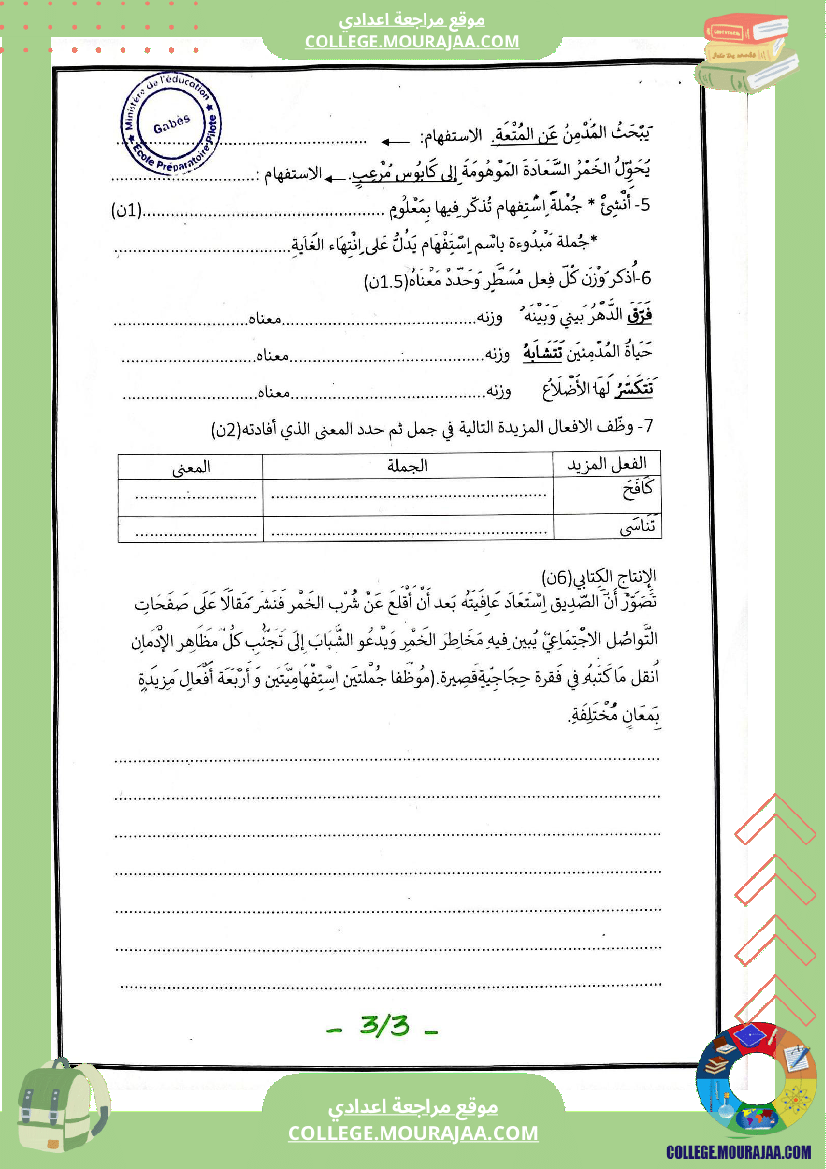 موقع مراجعة اعدادي
COLLEGE.MOURAJAA.COM
Ministère de l'éducation
Gabès
Ecole Préparatoire Pilote
يَبْحَثُ المُدْمِنُ عَنِ المُتْعَةِ. الاستفهام: ...........................
يُحَوِّلُ الخَمْرُ السَّعَادَةَ المَوْهُومَةَ إِلى كَابُوسٍ مُرْعِبٍ. الاستفهام :...........................
5- أَنْشِئْ * جُمْلَةً اِسْتِفهام تُذكّر فِيها بِمَعْلُومٍ ...........................(1ن)
*جُملة مَبْدُوءة باسْم اِسْتِفْهام يَدُلُّ عَلى اِنْتِهَاء الغَايَةِ...........................
6-اُذكر وَزْنَ كُلّ فِعل مُسَطَّرٍ وَحَدّدْ مَعْنَاهُ(1.5ن)
فَرَّقَ الدَّهْرُ بَيني وَبَيْنَهُ وزنه...........................معناه...........................
حَيَاةُ المُدْمِنِيَن تَتَشَابَهُ وزنه...........................معناه...........................
تَتَكَسَّرُ لَهَا الأَضْلَاعُ وزنه...........................معناه...........................
7- وظّف الافعال المزيدة التالية في جمل ثم حدد المعنى الذي أفادته(2ن)
الفعل المزيد الجملة المعنى
كَافَحَ ........................... ...........................
تَنَاسَى ........................... ...........................
الإنتاج الكِتابي(6ن)
تَصَوَّرْ أَنَّ الصَّدِيق اِسْتَعَادَ عَافِيَتَهُ بَعد أَنْ أَقْلَعَ عَنْ شُرْب الخَمْر فَنَشَر مَقَالًا عَلَى صَفَحَاتِ
التَّواصُل الاجْتِمَاعِيّ يُبين فِيهِ مَخَاطِرَ الخَمْرِ وَيَدْعُو الشَّبَابَ إِلَى تَجَنُّبِ كُلّ مَظَاهِر الإِدْمَانِ
اُنقل مَا كَتَبَهُ في فَقرة حِجَاجِيّةقَصِيرة.(مُوَظّفا جُمْلتَين اِسْتِفْهَامِيَّتَين وَ أَرْبَعَة أَفْعَالٍ مَزِيدَةٍ
بِمَعَانٍ مُخْتَلِفَةٍ.
...........................
...........................
...........................
...........................
...........................
...........................
...........................
- 3/3 -
موقع مراجعة اعدادي
COLLEGE.MOURAJAA.COM
COLLEGE.MOURAJAA.COM